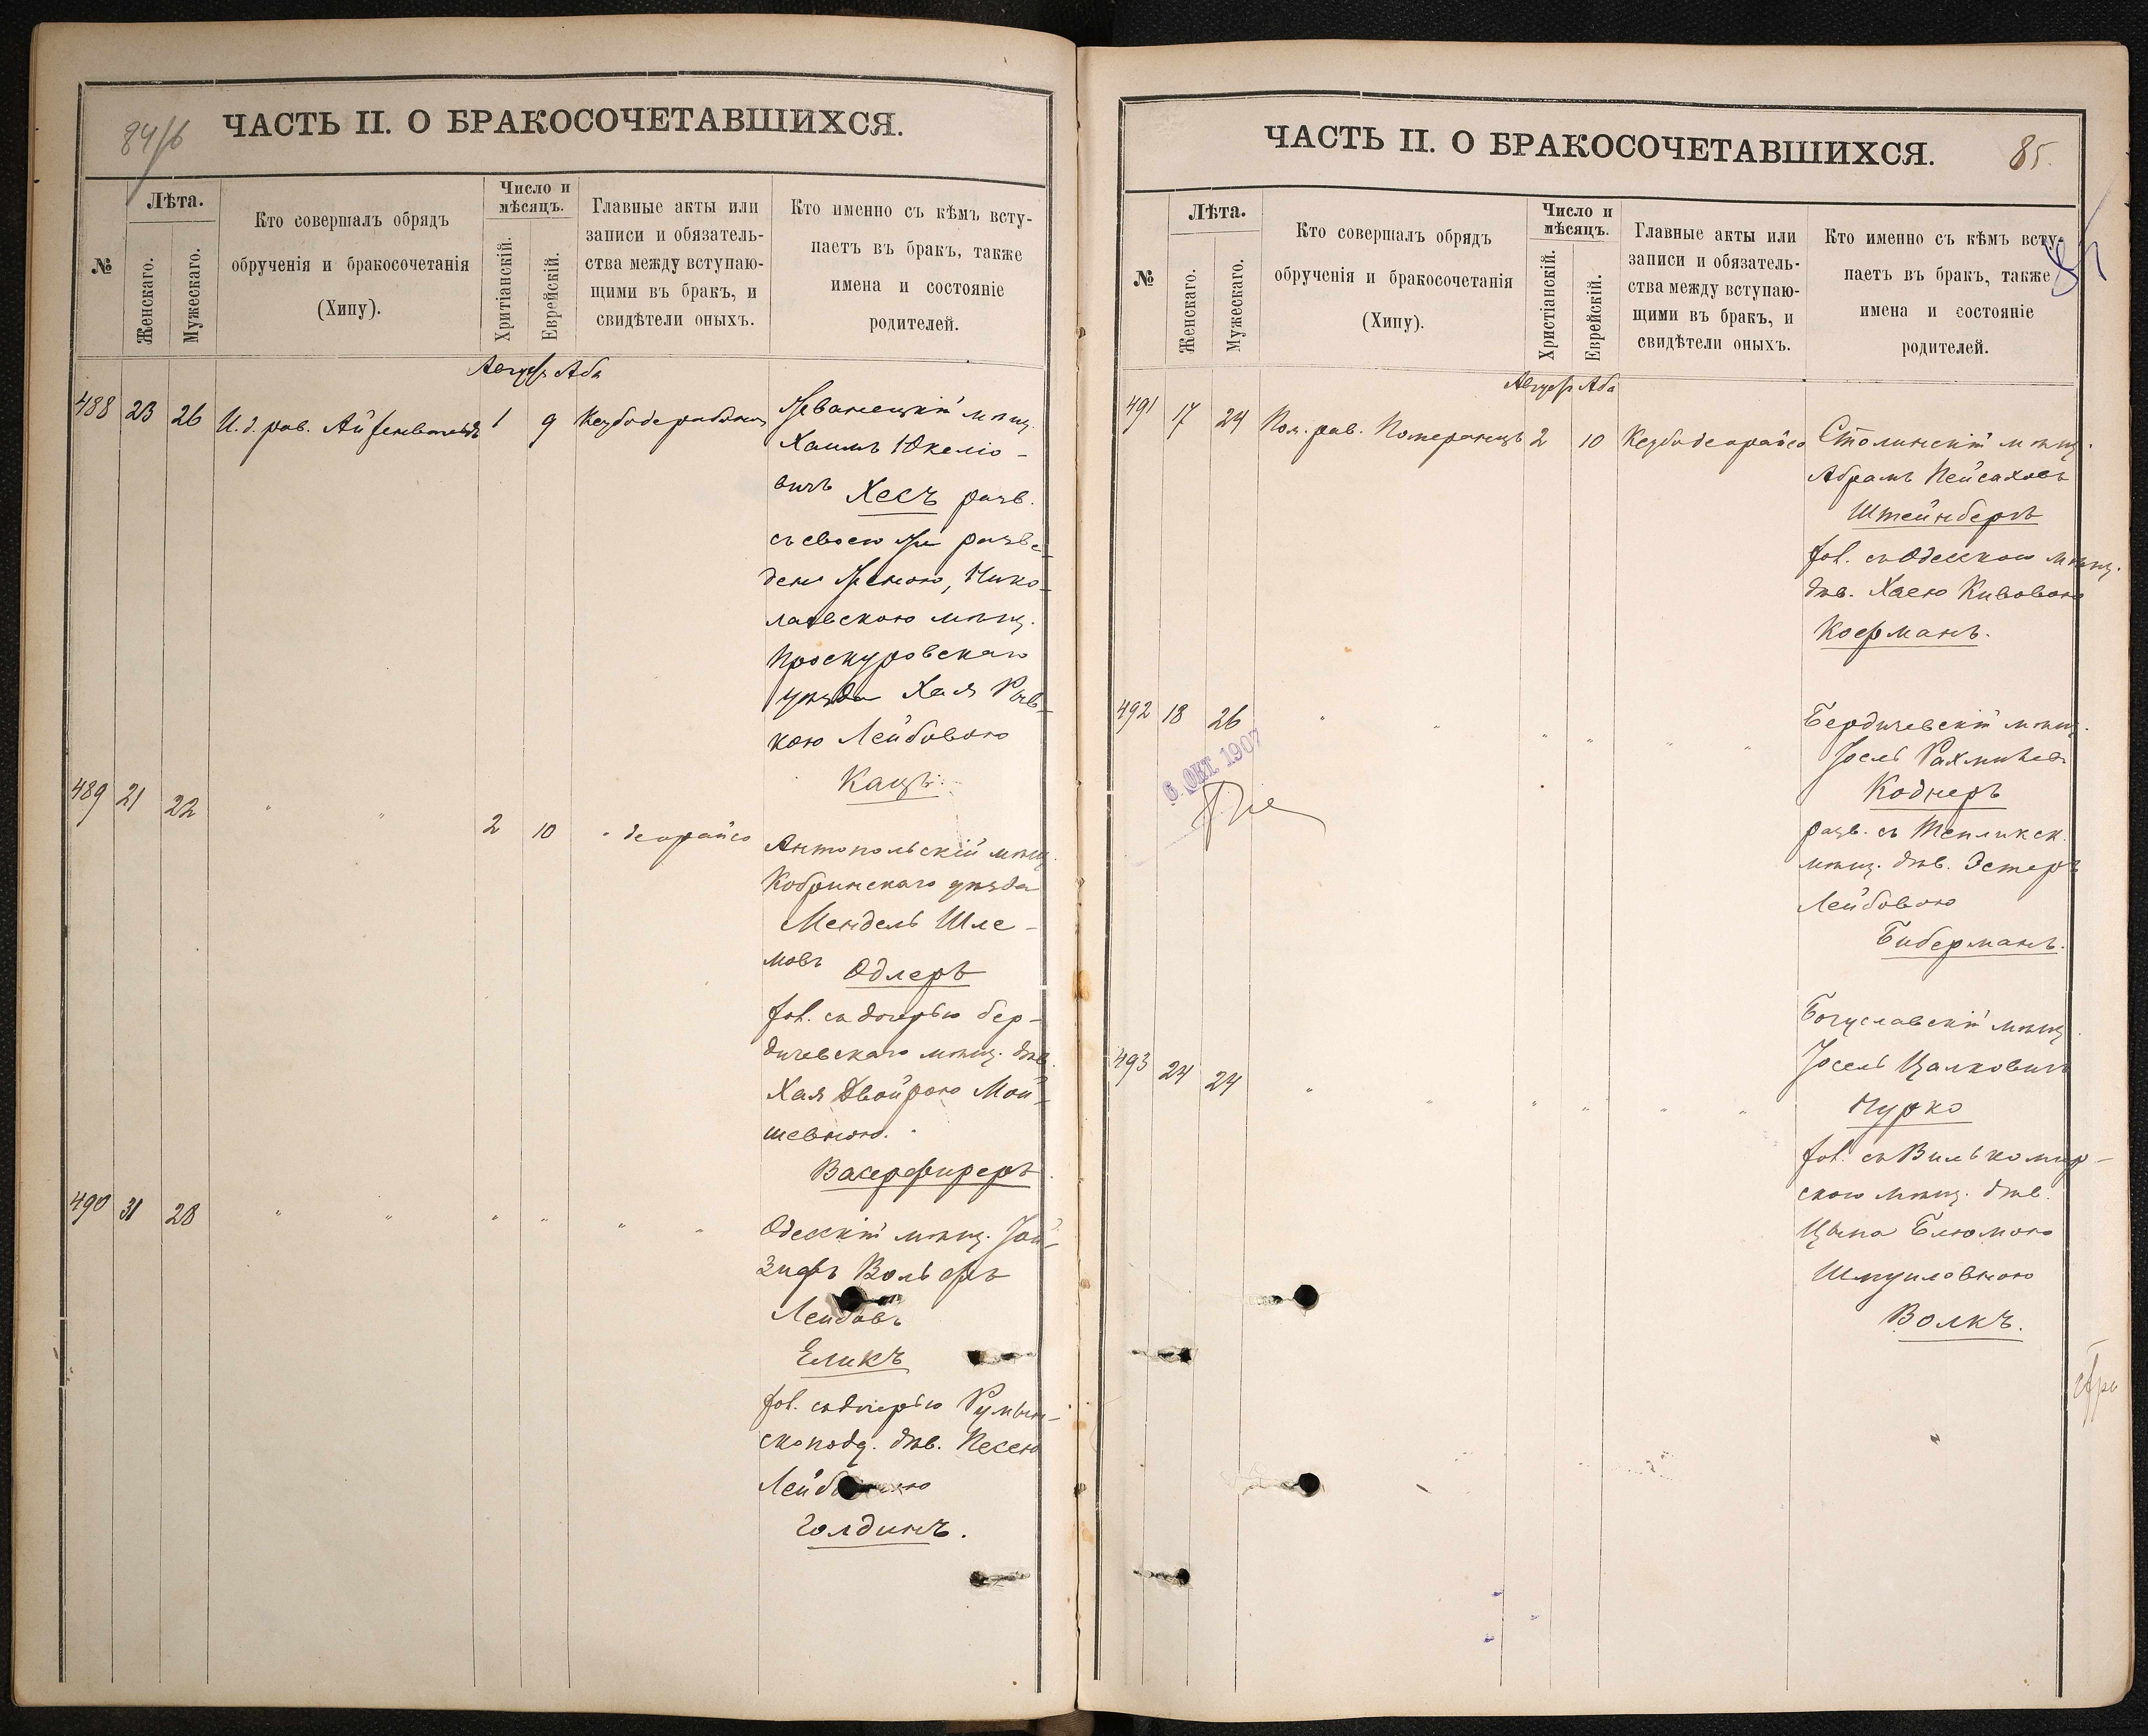 84/б
ЧАСТЬ II. О БРАКОСОЧЕТАВШИХСЯ.
№
Лѣта.
Женскаго.
Мужескаго.
Кто совершалъ обрядъ
обрученія и бракосочетанія
(Хипу).
Число и
мѣсяцъ.
Хритіанскій.
Еврейскій.
Главные акты или
записи и обязатель-
ства между вступаю-
щими въ бракъ, и
свидѣтели оныхъ.
Кто именно съ кѣмъ всту-
паетъ въ бракъ, также
имена и состояніе
родителей.
Августъ Аба
488 23 26 И. д. рав. Айзенвальдъ 1 9
Жванецкій мѣщ.
Хаимъ Юкеліо-
вичъ Хесъ разв.
съ своею же разве-
ден. женою, Нико-
лаевскою мѣщ.
Проскуровскаго
уѣзда Хая Рив-
кою Лейбовою
Кацъ.
489 21 22 " " 2 10 " деорайсо
Антопольскій мѣщ.
Кобринскаго уѣзда
Мендель Шле-
мовъ Одлеръ
хол. съ дочерью бер-
дичевскаго мѣщ. дѣв.
Хая Двойрою Мой-
шевною.
Васерфиреръ
490 31 28 " " " " " "
Одесскій мѣщ. Іой-
зифъ Вольфъ
Лейбовъ
Еликъ
хол. съ дочерью Румын-
скопод. дѣв. Песею
Голдинъ.
ЧАСТЬ II. О БРАКОСОЧЕТАВШИХСЯ.
85.
85
№
Лѣта.
Женскаго.
Мужескаго.
Кто совершалъ обрядъ
обрученія и бракосочетанія
(Хипу).
Число и
мѣсяцъ.
Христіанскій.
Еврейскій.
Главные акты или
записи и обязатель-
ства между вступаю-
щими въ бракъ, и
свидѣтели оныхъ.
Кто именно съ кѣмъ всту-
паетъ въ бракъ, также
имена и состояніе
родителей.
Августъ Аба
491 17 24 Пом. рав. Померанецъ 2 10 Кезбо деорайсо
Столинскій мѣщ.
Абрамъ Пейсаховъ
Штейнбергъ
хол. съ Одесскою мѣщ.
дѣв. Хаею Кивовою
Кофманъ.
492 18 26 " " " " " "
6. ОКТ. 1907
Бердичевскій мѣщ.
Іосель Рахмилев.
Коднеръ
разв. съ Тепликск.
мѣщ. дѣв. Эстеръ
Лейбовою
Биберманъ.
493 24 24 " " " " " "
Богуславскій мѣщ.
Іосель Цалковичъ
Чурко
хол. съ Вилькомир-
скою мѣщ. дѣв.
Цыпа Блюмою
Шмуиловною
Волкъ.